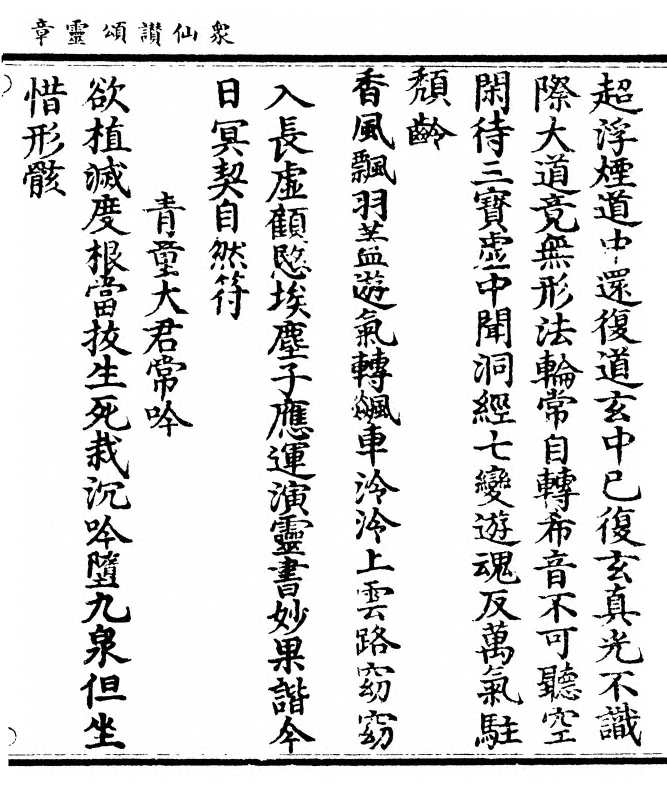 衆仙讃頌靈章
超浮煙道中還復道玄中已復玄真光不識
際大道竟無形法輪常自轉希音不可聽空
閑待三寶虛中聞洞經七變遊魂反萬氣駐
頹齡
香風飄羽蓋遊氣轉飊車泠泠上雲路窈窈
入長虛顧愍埃塵子應運演靈書妙果諧今
日冥契自然符
青童大君常吟
欲植滅度根當拔生死栽沉吟墮九泉但坐
惜形骸